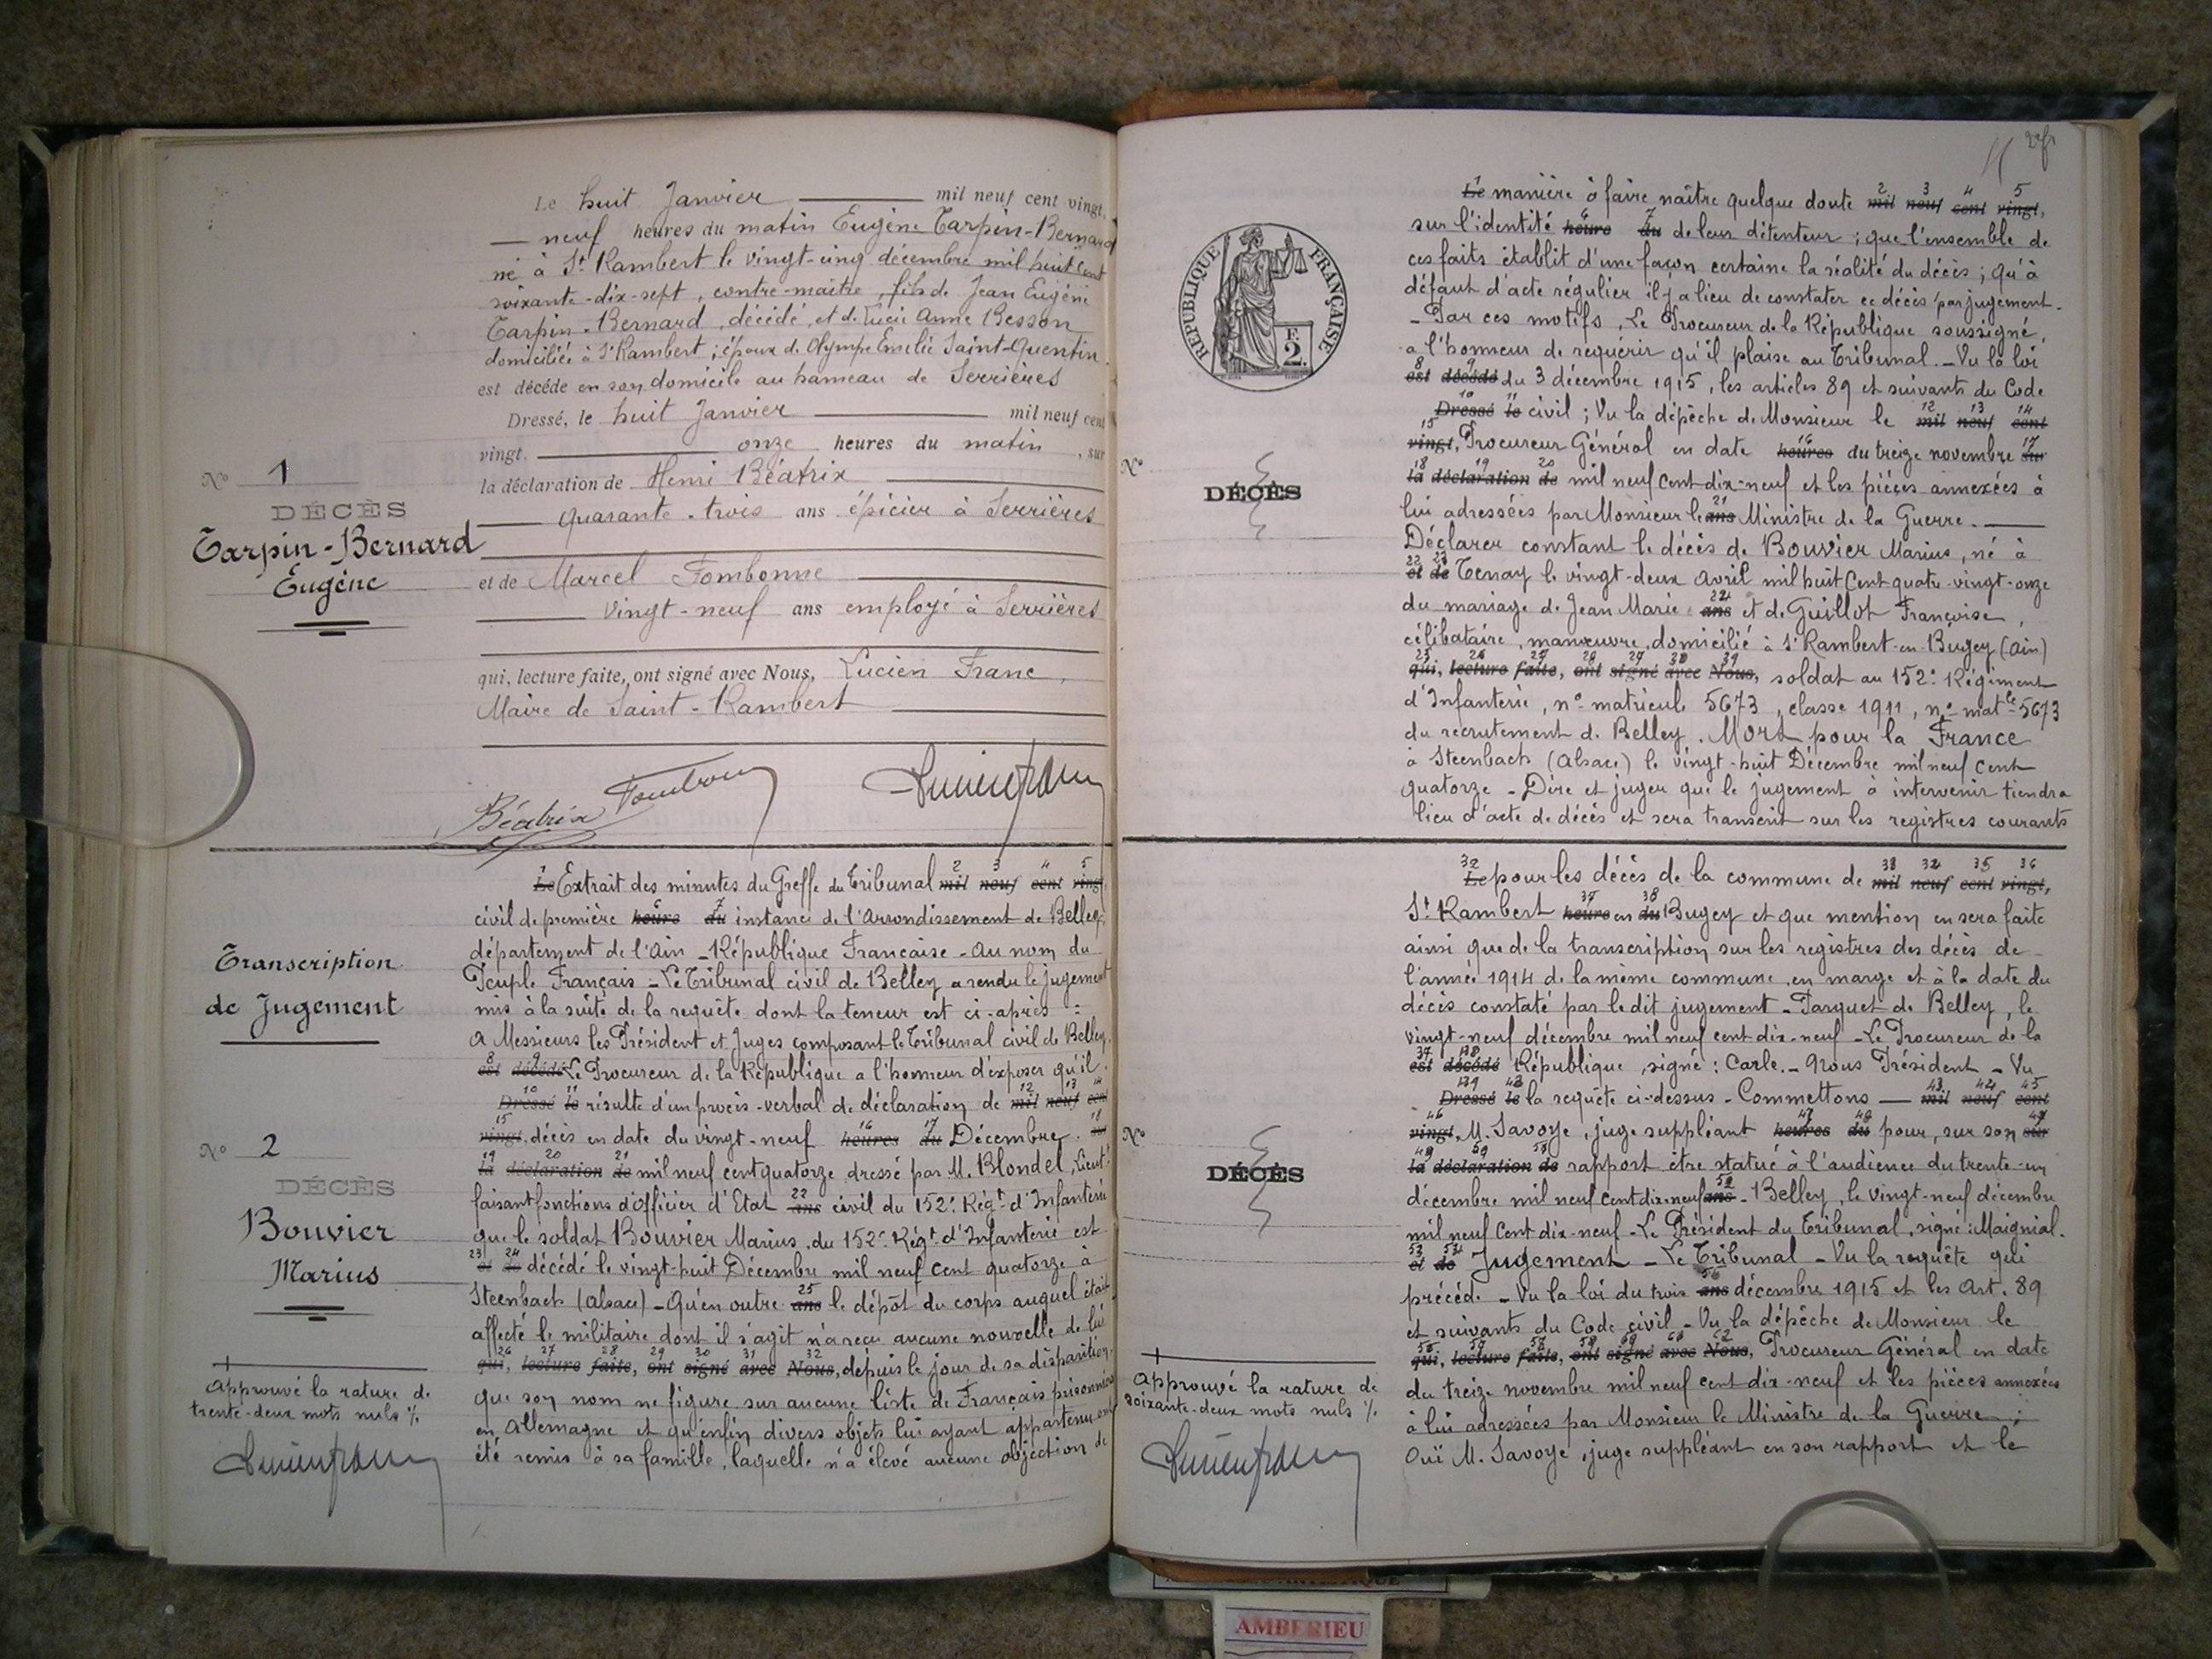 Le huit Janvier mil neuf cent vingt,
neuf heures du matin Eugène Tarpin-Bernard
né à St Rambert le vingt-cinq décembre mil huit cent
soixante-dix-sept, contre-maître, fils de Jean Eugène
Tarpin-Bernard, décédé, et de Lucie Anne Besson
domiciliée à St Rambert ; époux de Olympe Emélie Saint-Quentin
est décédé en son domicile au hameau de Serrières
Dressé, le huit Janvier mil neuf cent
vingt. onze heures du matin, sur
la déclaration de Henri Béatrix
quarante-trois ans épicier à Serrières
et de Marcel Fombonne
vingt-neuf ans employé à Serrières
qui, lecture faite, ont signé avec Nous, Lucien Franc,
Maire de Saint-Rambert
Béatrix
N° 1
DÉCÈS
Tarpin-Bernard
Eugène
Transcription
de Jugement
N° 2
DÉCÈS
Bouvier
Marius
Approuvé la rature de
trente-deux mots nuls
Le Extrait des minutes du Greffe du Tribunal mil neuf cent vingt,
civil de première heure du instance de l'Arrondissement de Belley,
département de l'Ain - République Française - Au nom du
Peuple Français - Le Tribunal civil de Belley a rendu le jugement
mis à la suite de la requête dont la teneur est ci-après :
A Messieurs les Président et Juges composant le Tribunal civil de Belley.
est décédé Le Procureur de la République a l'honneur d'exposer qu'il
Dressé le résulte d'un procès-verbal de déclaration de mil neuf cent
vingt, décès en date du vingt-neuf heures du Décembre sur
la déclaration de mil neuf cent quatorze dressé par M. Blondel, Lieut.
faisant fonctions d'officier d'Etat ans civil du 152e Régt d'Infanterie
que le soldat Bouvier Marius, du 152e Régt d'Infanterie est
et de décédé le vingt-huit Décembre mil neuf cent quatorze à
Steenbach (Alsace) - Qu'en outre ans le dépôt du corps auquel était
affecté le militaire dont il s'agit n'a reçu aucune nouvelle de lui
qui, lecture faite, ont signé avec Nous, depuis le jour de sa disparition,
que son nom ne figure sur aucune liste de Français prisonniers
en Allemagne et qu'enfin divers objets lui ayant appartenu ont
été remis à sa famille, laquelle n'a élevé aucune objection de
RÉPUBLIQUE FRANÇAISE
F.
2.
N°
DÉCÈS
Le manière à faire naître quelque doute mil neuf cent vingt,
sur l'identité heure du de leur détenteur ; que l'ensemble de
ces faits établit d'une façon certaine la réalité du décès ; qu'à
défaut d'acte régulier il y a lieu de constater ce décès par jugement.
- Par ces motifs, Le Procureur de la République soussigné,
a l'honneur de requérir qu'il plaise au Tribunal. - Vu la loi
est décédé du 3 décembre 1915, les articles 89 et suivants du Code
Dressé le civil ; Vu la dépêche de Monsieur le mil neuf cent
vingt, Procureur Général en date heures du treize novembre sur
la déclaration de mil neuf cent dix-neuf et les pièces annexées à
lui adressées par Monsieur le ans Ministre de la Guerre.
Déclarer constant le décès de Bouvier Marius, né à
et de Tenay le vingt-deux avril mil huit cent quatre-vingt-onze
du mariage de Jean Marie ans et de Guillot Françoise,
célibataire, manœuvre, domicilié à St Rambert-en-Bugey (Ain)
qui, lecture faite, ont signé avec Nous, soldat au 152e Régiment
d'Infanterie, n° matricule 5673, classe 1911, n° matle 5673
du recrutement de Belley. Mort pour la France
à Steenbach (Alsace) le vingt-huit Décembre mil neuf cent
quatorze - Dire et juger que le jugement à intervenir tiendra
lieu d'acte de décès et sera transcrit sur les registres courants
Le pour les décès de la commune de mil neuf cent vingt,
St Rambert heure en du Bugey et que mention en sera faite
ainsi que de la transcription sur les registres des décès de
l'année 1914 de la même commune, en marge et à la date du
décès constaté par le dit jugement - Parquet de Belley, le
vingt-neuf décembre mil neuf cent dix-neuf - Le Procureur de la
est décédé République, signé : Carle. - Nous Président - Vu
Dressé le la requête ci-dessus - Commettons mil neuf cent
vingt, M. Savoye, juge suppléant heures du pour, sur son sur
la déclaration de rapport être statué à l'audience du trente-un
décembre mil neuf cent dix-neuf ans - Belley, le vingt-neuf décembre
mil neuf cent dix-neuf - Le Président du Tribunal, signé : Maignial.
et de Jugement - Le Tribunal - Vu la requête qui
précède - Vu la loi du trois ans décembre 1915 et les Art. 89
et suivants du Code civil - Vu la dépêche de Monsieur le
qui, lecture faite, ont signé avec Nous, Procureur Général en date
du treize novembre mil neuf cent dix-neuf et les pièces annexées
à lui adressées par Monsieur le Ministre de la Guerre ;
Ouï M. Savoye, juge suppléant en son rapport et le
N°
DÉCÈS
Approuvé la rature de
soixante-deux mots nuls
AMBERIEU